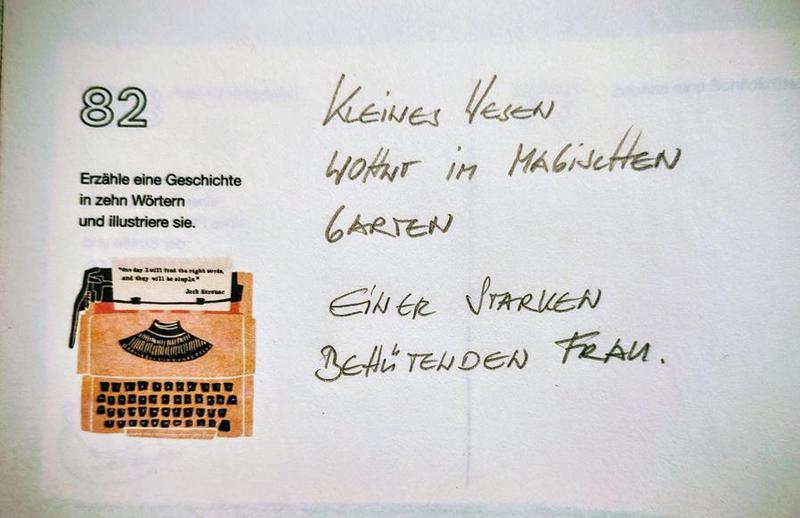 82
Erzähle eine Geschichte
in zehn Wörtern
und illustriere sie.
"One day I will find the right words,
and they will be simple."
Jack Kerouac
KLEINES WESEN
WOHNT IM MAGISCHEN
GARTEN
EINER STARKEN
BEHÜTENDEN FRAU.